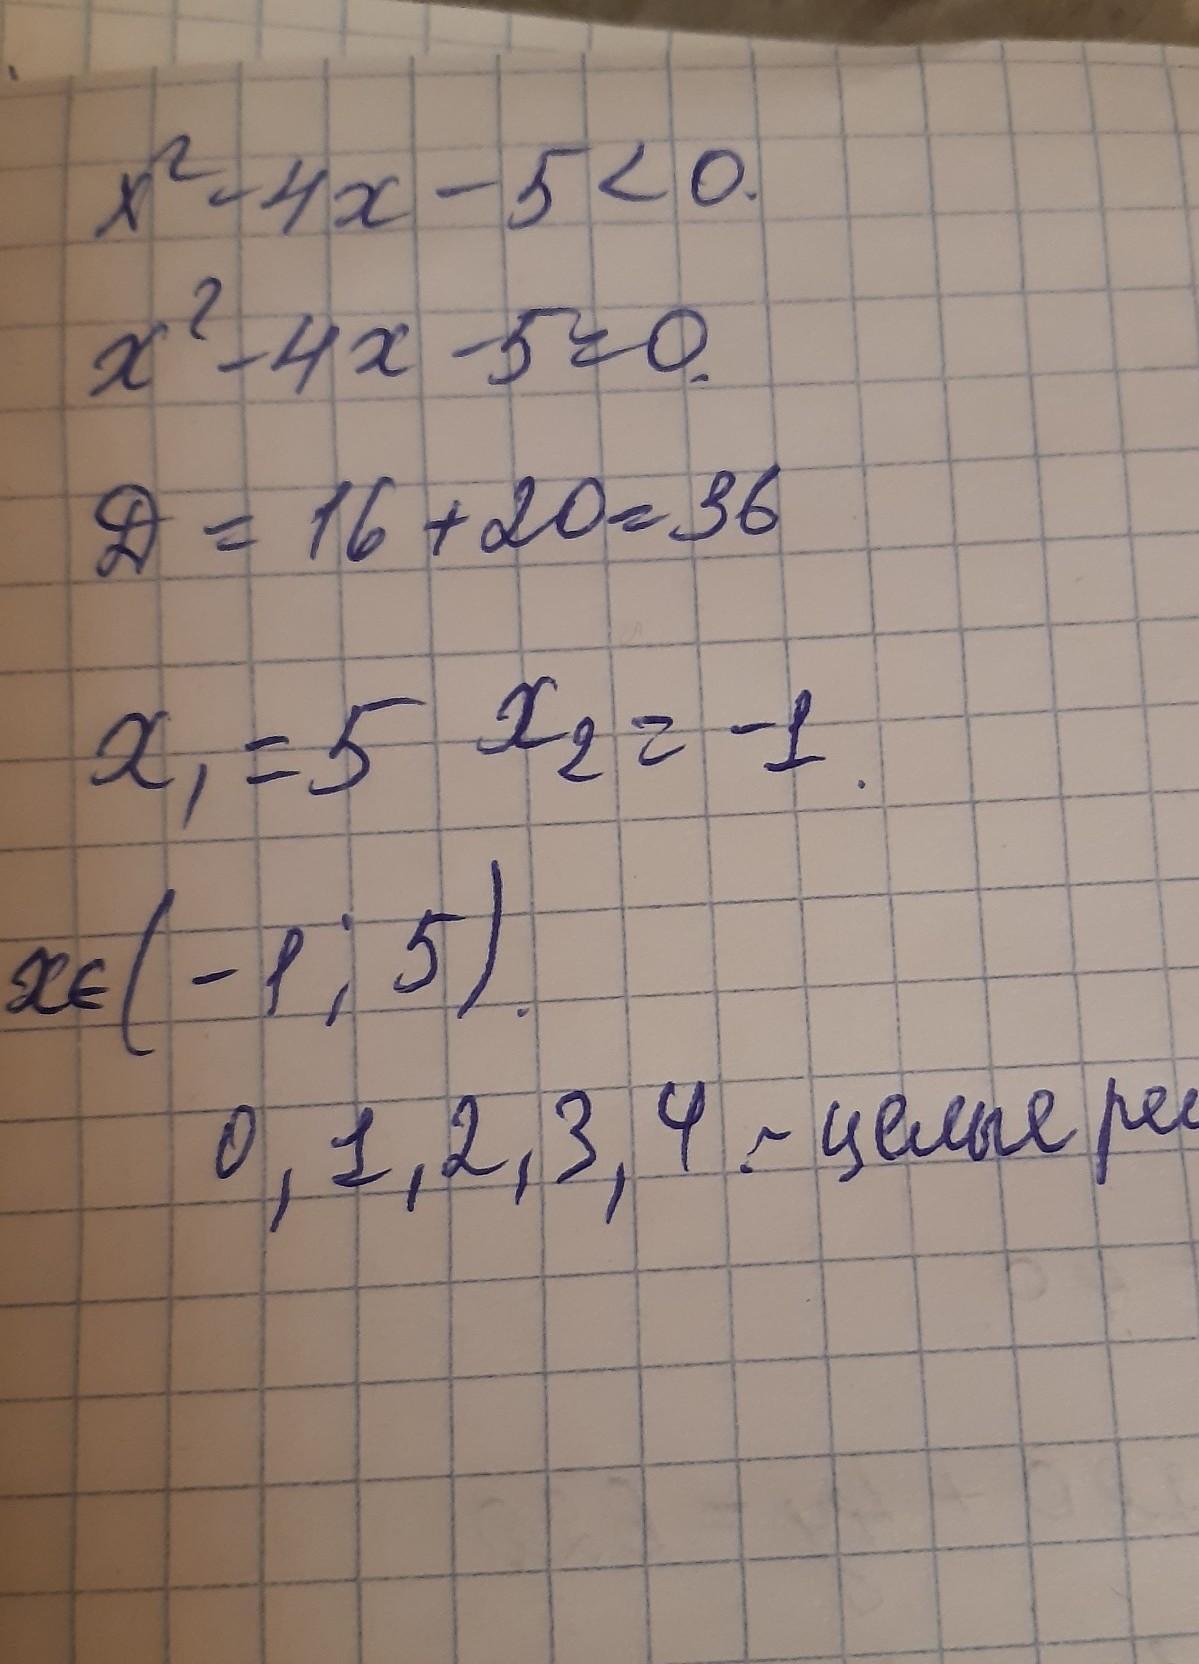 x² - 4x - 5 < 0.
x² - 4x - 5 = 0.
D = 16 + 20 = 36
x₁ = 5 x₂ = -1.
x∈(-1; 5).
0, 1, 2, 3, 4. - целые